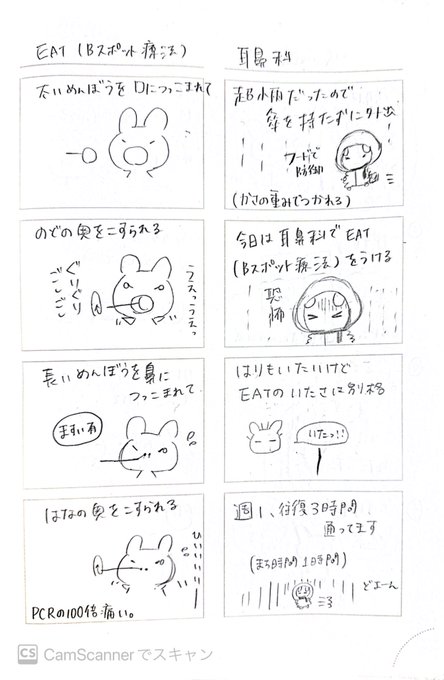 耳鼻科
超小雨だったので
傘を持たずに外出
フードで
防御
(かさの重みでつかれる)
今日は耳鼻科でEAT
(Bスポット療法)をうける
恐怖
はりもいたいけど
EATのいたさは別格
いたっ!!
週1、往復3時間
通ってます
(まち時間1時間)
どよーん
EAT(Bスポット療法)
太いめんぼうを口につっこまれて
のどの奥をこすられる
ぐりぐり
ごしごし
うえっうえっ
長いめんぼうを鼻に
つっこまれて
ますい有
はなの奥をこすられる
ひいいいい
PCRの100倍痛い。
CS CamScannerでスキャン